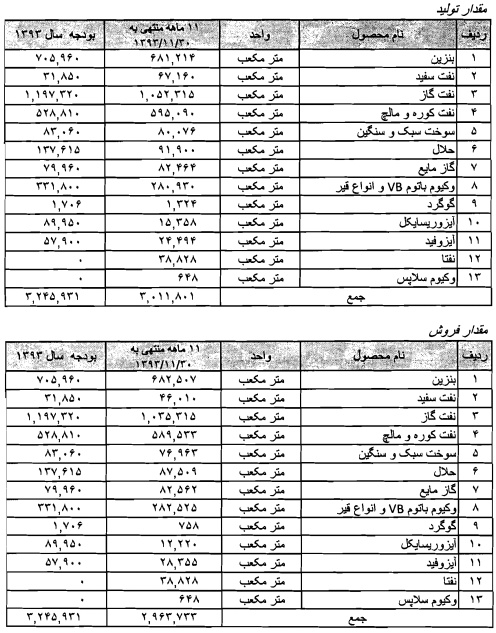 مقدار تولید
ردیف نام محصول واحد ۱۱ ماهه منتهی به ۱۳۹۳/۱۱/۳۰ بودجه سال ۱۳۹۳
۱ بنزین متر مکعب ۶۸۱,۲۱۴ ۷۰۵,۹۶۰
۲ نفت سفید متر مکعب ۶۷,۱۶۰ ۳۱,۸۵۰
۳ نفت گاز متر مکعب ۱,۰۵۲,۳۱۵ ۱,۱۹۷,۳۲۰
۴ نفت کوره و مالچ متر مکعب ۵۹۵,۰۹۰ ۵۲۸,۸۱۰
۵ سوخت سبک و سنگین متر مکعب ۸۰,۰۷۶ ۸۳,۰۶۰
۶ حلال متر مکعب ۹۱,۹۰۰ ۱۳۷,۶۱۵
۷ گاز مایع متر مکعب ۸۲,۴۶۴ ۷۹,۹۶۰
۸ وکیوم باتوم VB و انواع قیر متر مکعب ۲۸۰,۹۳۰ ۳۳۱,۸۰۰
۹ گوگرد متر مکعب ۱,۳۲۴ ۱,۷۰۶
۱۰ آیزوریسایکل متر مکعب ۱۵,۳۵۸ ۸۹,۹۵۰
۱۱ آیزوفید متر مکعب ۲۴,۴۹۴ ۵۷,۹۰۰
۱۲ نفتا متر مکعب ۳۸,۸۲۸ ۰
۱۳ وکیوم سلاپس متر مکعب ۶۴۸ ۰
جمع ۳,۰۱۱,۸۰۱ ۳,۲۴۵,۹۳۱
مقدار فروش
ردیف نام محصول واحد ۱۱ ماهه منتهی به ۱۳۹۳/۱۱/۳۰ بودجه سال ۱۳۹۳
۱ بنزین متر مکعب ۶۸۲,۵۰۷ ۷۰۵,۹۶۰
۲ نفت سفید متر مکعب ۴۶,۰۱۰ ۳۱,۸۵۰
۳ نفت گاز متر مکعب ۱,۰۳۵,۳۱۵ ۱,۱۹۷,۳۲۰
۴ نفت کوره و مالچ متر مکعب ۵۸۹,۵۳۳ ۵۲۸,۸۱۰
۵ سوخت سبک و سنگین متر مکعب ۷۶,۹۶۳ ۸۳,۰۶۰
۶ حلال متر مکعب ۸۷,۵۰۹ ۱۳۷,۶۱۵
۷ گاز مایع متر مکعب ۸۲,۵۶۲ ۷۹,۹۶۰
۸ وکیوم باتوم VB و انواع قیر متر مکعب ۲۸۲,۵۲۵ ۳۳۱,۸۰۰
۹ گوگرد متر مکعب ۷۵۸ ۱,۷۰۶
۱۰ آیزوریسایکل متر مکعب ۱۲,۲۲۰ ۸۹,۹۵۰
۱۱ آیزوفید متر مکعب ۲۸,۳۵۵ ۵۷,۹۰۰
۱۲ نفتا متر مکعب ۳۸,۸۲۸ ۰
۱۳ وکیوم سلاپس متر مکعب ۶۴۸ ۰
جمع ۲,۹۶۳,۷۳۳ ۳,۲۴۵,۹۳۱